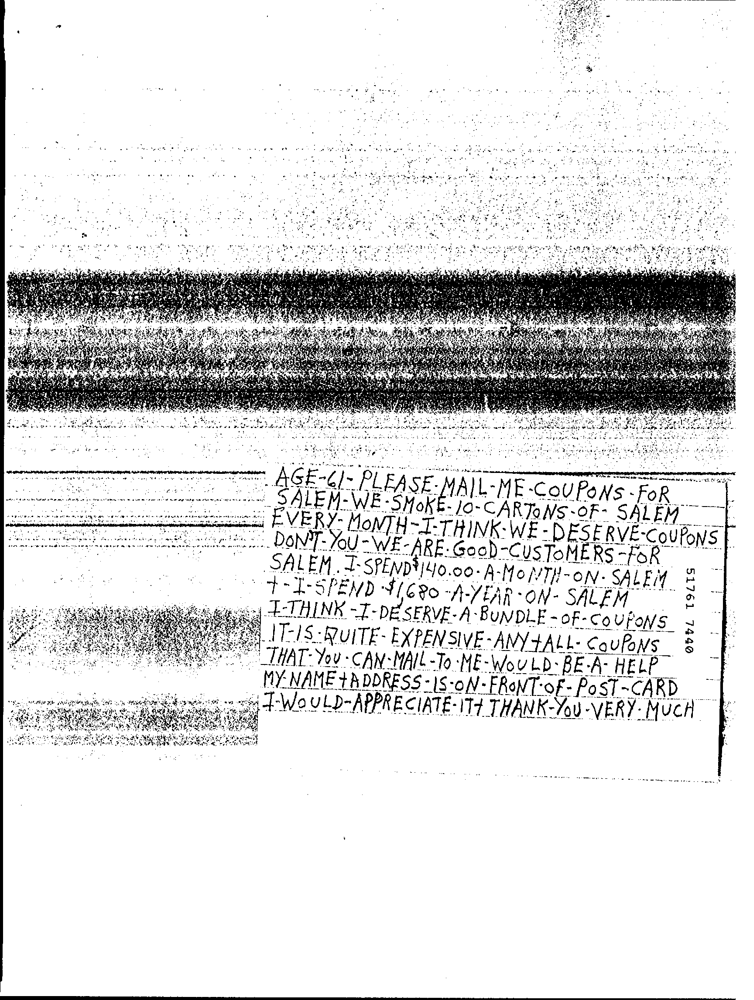 AGE-61-PLEASE-MAIL-ME-COUPONS-FOR
SALEM-WE-SMOKE-10-CARTONS-OF-SALEM
EVERY-MONTH-I-THINK-WE-DESERVE-COUPONS
DON'T-YOU-WE-ARE-GOOD-CUSTOMERS-FOR
SALEM. I-SPEND $140.00-A-MONTH-ON-SALEM
+-I-SPEND-$1680-A-YEAR-ON-SALEM
I-THINK-I-DESERVE-A-BUNDLE-OF-COUPONS
IT-IS-QUITE-EXPENSIVE-ANY+ALL-COUPONS
THAT-YOU-CAN-MAIL-TO-ME-WOULD-BE-A-HELP
MY-NAME+ADDRESS-IS-ON-FRONT-OF-POST-CARD
I-WOULD-APPRECIATE-IT+THANK-YOU-VERY-MUCH
51761 7440